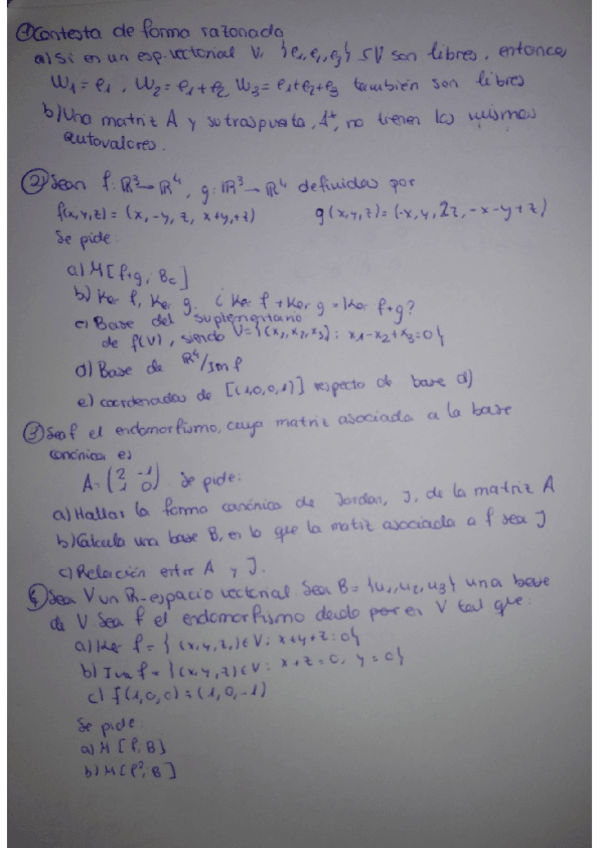 ① Contesta de forma razonada
a) Si en un esp. vectorial V, {e₁, e₂, e₃} ⊆ V son libres, entonces
W₁ = e₁, W₂ = e₁+e₂, W₃ = e₁+e₂+e₃ también son libres
b) Una matriz A y su traspuesta, Aᵗ, no tienen los mismos
autovalores.
② Sean f: ℝ³→ℝ⁴, g: ℝ³→ℝ⁴ definidas por
f(x,y,z) = (x, -y, z, x+y+z) g(x,y,z) = (-x, y, 2z, -x-y+z)
Se pide:
a) M[f+g, Bc]
b) Ker f, Ker g. ¿Ker f + Ker g = Ker f+g?
c) Base del suplementario
de f(V), siendo V = {(x₁, x₂, x₃): x₁-x₂+x₃=0}
d) Base de ℝ⁴/Im f
e) coordenadas de [(1,0,0,1)] respecto de base d)
③ Sea f el endomorfismo, cuya matriz asociada a la base
canónica es
A = (2 -1
1 0). Se pide:
a) Hallar la forma canónica de Jordan, J, de la matriz A
b) Calcula una base B, en lo que la matriz asociada a f sea J
c) Relación entre A y J.
④ Sea V un ℝ-espacio vectorial. Sea B = {u₁, u₂, u₃} una base
de V Sea f el endomorfismo dado por en V tal que:
a) Ker f = {(x,y,z) ∈ V: x+y+z=0}
b) Im f = {(x,y,z) ∈ V: x+z=0, y=0}
c) f(1,0,0) = (1,0,-1)
Se pide:
a) M[f, B]
b) M[f², B]